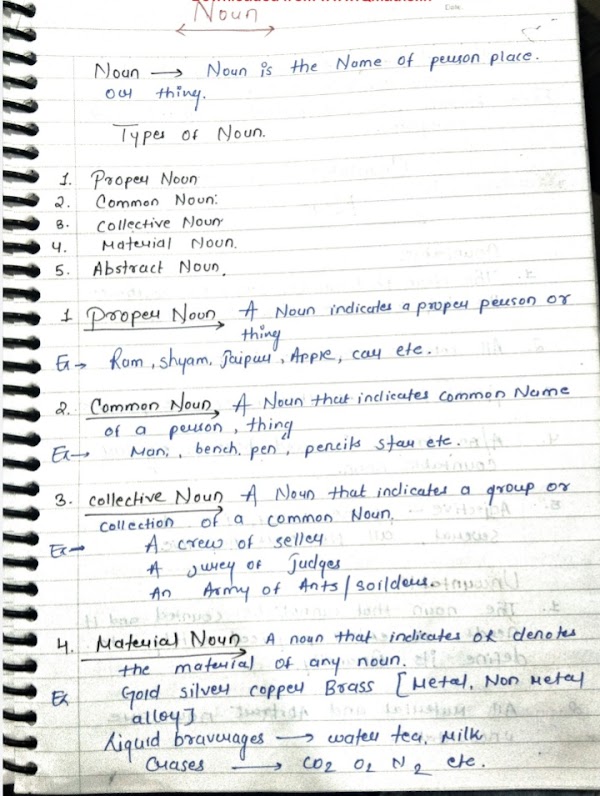 Noun
Date
Noun → Noun is the Name of person place.
or thing.
Types of Noun.
1. Proper Noun
2. Common Noun.
3. Collective Noun
4. Material Noun.
5. Abstract Noun.
1 Proper Noun A Noun indicates a proper person or
thing
Ex → Ram, shyam, Jaipur, Apple, car etc.
2. Common Noun, A Noun that indicates common Name
of a person, thing
Ex → Man, bench, pen, pencils star etc.
3. collective Noun A Noun that indicates a group or
collection of a common Noun,
Ex → A crew of selley
A jurey of judges
An Army of Ants / soilders.
4. Material Noun A noun that indicates or denotes
the material of any noun.
Ex Gold silver copper Brass [Metal, Non Metal
alloy]
Liquid braverages → water tea, Milk
Gases → CO2 O2 N2 etc.